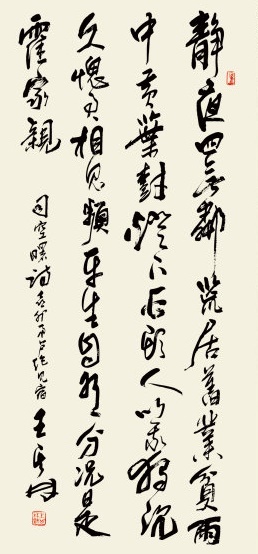 靜夜四無鄰荒居舊業貧雨
中黃葉樹燈下白頭人以我獨沉
久愧君相見頻平生自有分況是
霍家親
司空曙詩喜外弟卢纶見宿 王